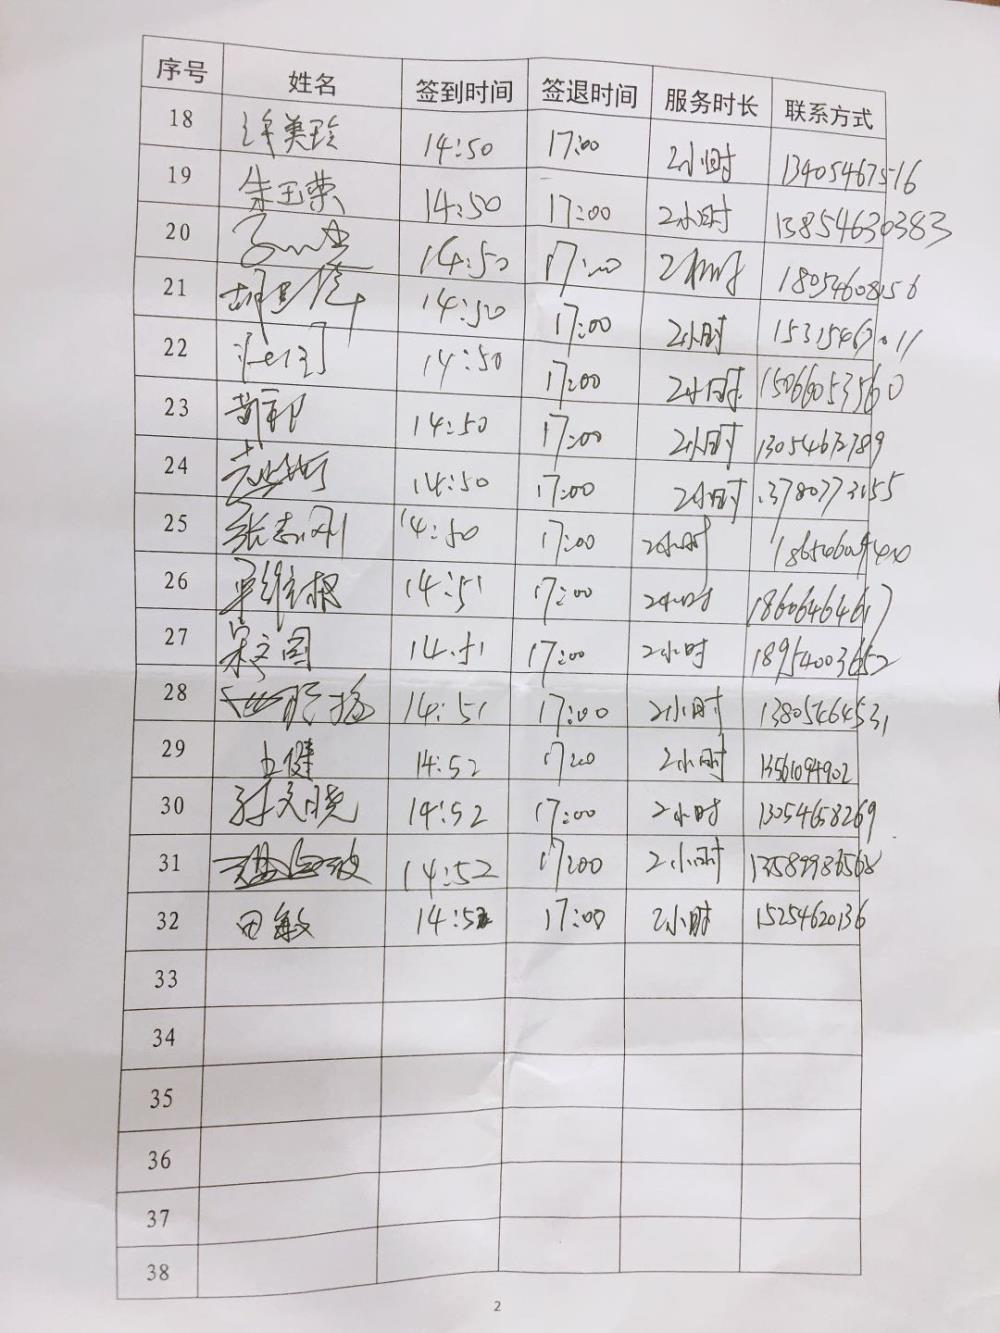 序号 姓名 签到时间 签退时间 服务时长 联系方式
18 徐美玲 14:50 17:00 2小时 13405467516
19 朱玉荣 14:50 17:00 2小时 13854630383
20 14:50 17:00 2小时 18054608156
21 14:50 17:00 2小时
22 14:50 17:00 2小时 15066053560
23 14:50 17:00 2小时 13054672789
24 14:50 17:00 2小时
25 张志刚 14:50 17:00 2小时
26 14:51 17:00 2小时 18606464617
27 宋文国 14:51 17:00 2小时 18954003652
28 14:51 17:00 2小时 13805464531
29 王健 14:52 17:00 2小时 13561094902
30 孙文晓 14:52 17:00 2小时 13054658269
31 14:52 17:00 2小时 13589986568
32 田敏 14:52 17:00 2小时 15254620136
33
34
35
36
37
38
2